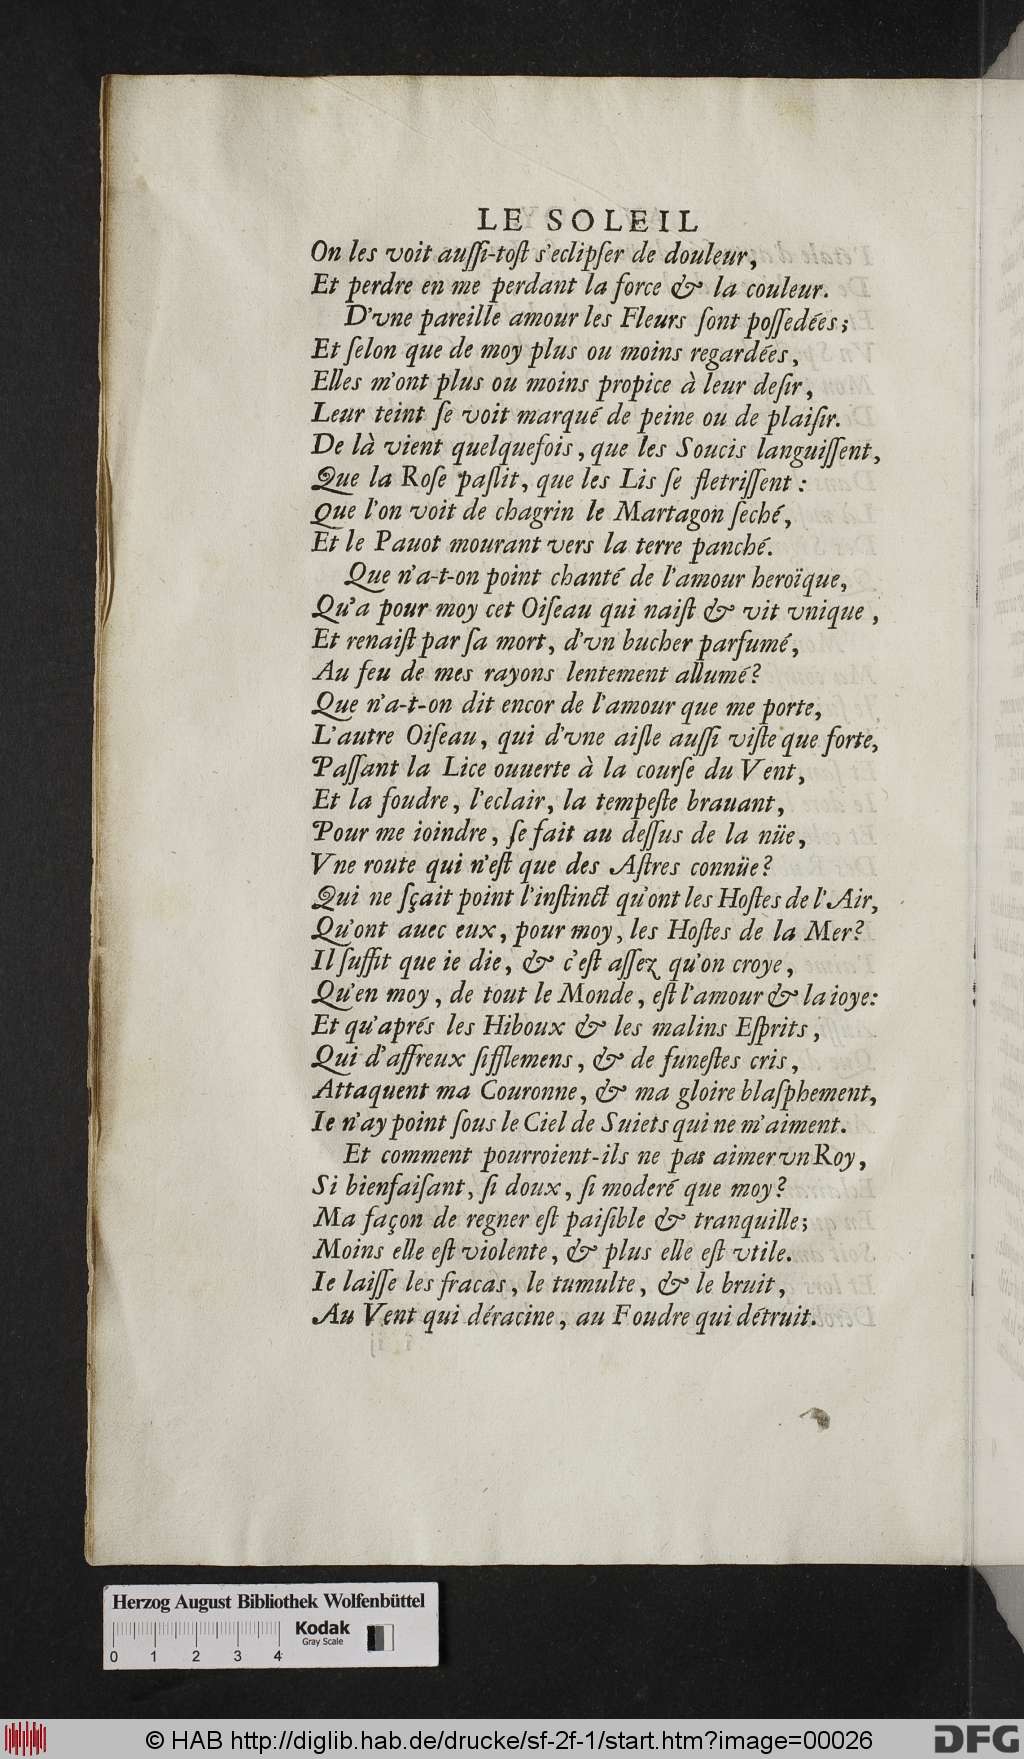 LE SOLEIL
On les voit auſſi-toſt s'eclipſer de douleur,
Et perdre en me perdant la force & la couleur.
D'vne pareille amour les Fleurs ſont poſſedées;
Et ſelon que de moy plus ou moins regardées,
Elles m'ont plus ou moins propice à leur deſir,
Leur teint ſe voit marqué de peine ou de plaiſir.
De là vient quelquefois, que les Soucis languiſſent,
Que la Roſe paſlit, que les Lis ſe fletriſſent :
Que l'on voit de chagrin le Martagon ſeché,
Et le Pauot mourant vers la terre panché.
Que n'a-t-on point chanté de l'amour heroïque,
Qu'a pour moy cet Oiſeau qui naiſt & vit vnique ,
Et renaiſt par ſa mort, d'vn bucher parfumé,
Au feu de mes rayons lentement allumé?
Que n'a-t-on dit encor de l'amour que me porte,
L'autre Oiſeau, qui d'vne aiſle auſſi viſte que forte,
Paſſant la Lice ouuerte à la courſe du Vent,
Et la foudre, l'eclair, la tempeſte brauant,
Pour me ioindre, ſe fait au deſſus de la nüe,
Vne route qui n'eſt que des Aſtres connüe?
Qui ne ſçait point l'inſtinct qu'ont les Hoſtes de l'Air,
Qu'ont auec eux, pour moy, les Hoſtes de la Mer?
Il ſuffit que ie die, & c'eſt aſſez qu'on croye,
Qu'en moy, de tout le Monde, eſt l'amour & la ioye:
Et qu'aprés les Hiboux & les malins Eſprits,
Qui d'affreux ſifflemens, & de funeſtes cris,
Attaquent ma Couronne, & ma gloire blaſphement,
Ie n'ay point ſous le Ciel de Suiets qui ne m'aiment.
Et comment pourroient-ils ne pas aimer vn Roy,
Si bienfaiſant, ſi doux, ſi moderé que moy?
Ma façon de regner eſt paiſible & tranquille;
Moins elle eſt violente, & plus elle eſt vtile.
Ie laiſſe les fracas, le tumulte, & le bruit,
Au Vent qui déracine, au Foudre qui détruit.
Herzog August Bibliothek Wolfenbüttel
Kodak
Gray Scale
0 1 2 3 4
© HAB http://diglib.hab.de/drucke/sf-2f-1/start.htm?image=00026
DFG